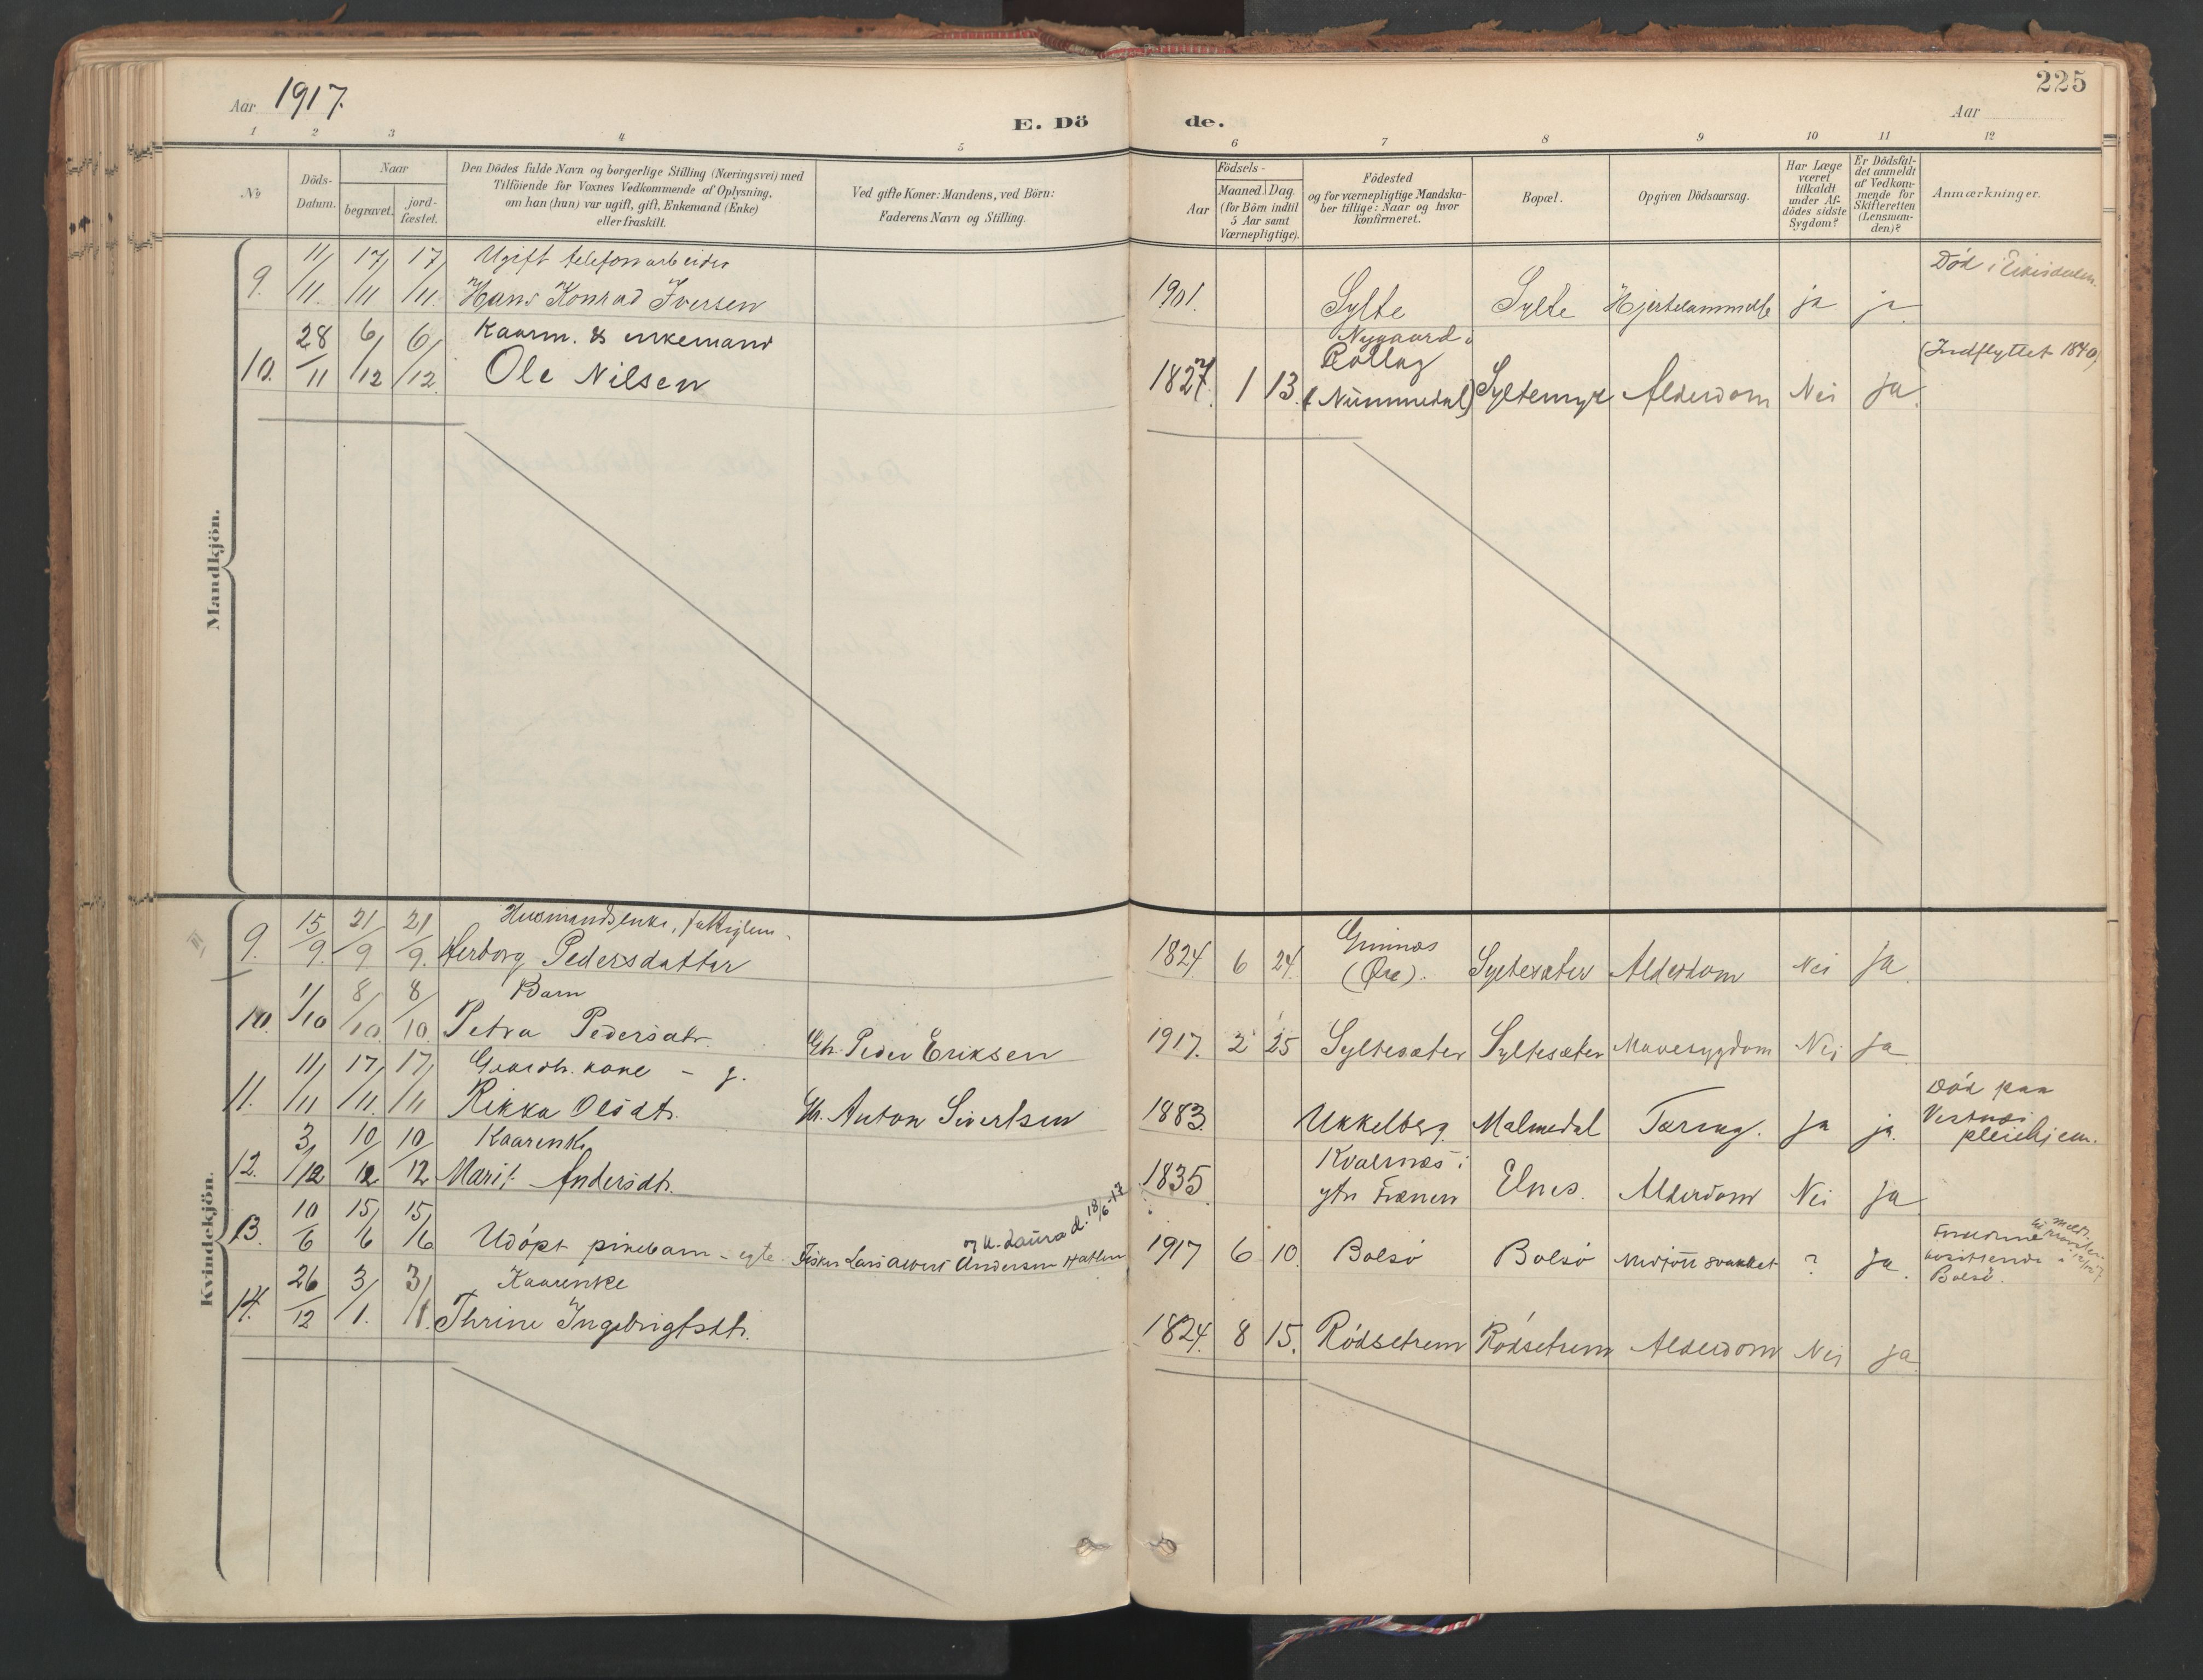 225
Aar 1917.
E. Döde.
Aar
1 2 3 4 5 6 7 8 9 10 11 12
No
Döds-Datum.
Naar
begravet.
jordfæstet.
Den Dödes fulde Navn og borgerlige Stilling (Næringsvei) med
Tilföiende for Voxnes Vedkommende af Oplysning,
om han (hun) var ugift, gift, Enkemand (Enke)
eller fraskilt.
Ved gifte Koner: Mandens, ved Börn:
Faderens Navn og Stilling.
Födsels-
Aar
Maaned. Dag.
(for Börn indtil
5 Aar samt
Værnepligtige).
Födested
og for værnepligtige Mandska-
ber tillige: Naar og hvor
konfirmeret.
Bopæl.
Opgiven Dödsaarsag.
Har Læge
været
tilkaldt
under Af-
dödes sidste
Sygdom?
Er Dödsfal-
det anmeldt
af Vedkom-
mende for
Skifteretten
(Lensman-
den)?
Anmærkninger.
Mandkjön.
9. 11/11. 17/11 17/11. Ugift telefonarbeider
Hans Konrad Iversen 1901. Sylte Sylte Hjertelammelse ja ja Död i Eikisdalen.
10. 28/11 6/12 6/12. Kaarm. & enkemand
Ole Nilsen 1827. 1 13. Nygaard i
Rollag
(Nummedal) Syltemyr Alderdom Nei ja. (Indflyttet 1840)
Kvindekjön.
9. 15/9. 21/9. 21/9. Husmandsenke, fattiglem.
Herborg Pedersdatter 1824 6 24. Gimnæs
(Øre). Syltesæter Alderdom Nei ja
10. 1/10 8/10. 8/10. Barn
Petra Pedersdtr. Gb. Peder Eriksen 1917. 2 25 Syltesæter Syltesæter Mavesygdom Nei ja
11. 11/11 17/11. 17/11 Gaardbr. kone - g.
Rikka Olsdtr. Gb. Anton Sivertsen 1883. Ukkelberg. Malmedal Tæring. ja ja. Död paa
Vestnæs
pleiehjem.
12. 3/12 10/12 10/12 Kaarenke
Marit Andersdtr. 1835 Kvalnæs i
ytr Frænen Elnes. Alderdom Nei ja
13. 10/6 15/6 15/6 Udöpt pikebarn - egte. Fisker Lars Alvert Andersen Hatlen
og h. Laura d. 18/6-17 1917 6 10. Bolsö Bolsö Medfött svakhet ? ja. Forældrene
bosittende i
Bolsö.
14. 26/12 3/1. 3/1. Kaarenke
Thrine Ingebrigtsdtr. 1824. 8 15. Rödsetrem Rödsetrem Alderdom Nei ja.